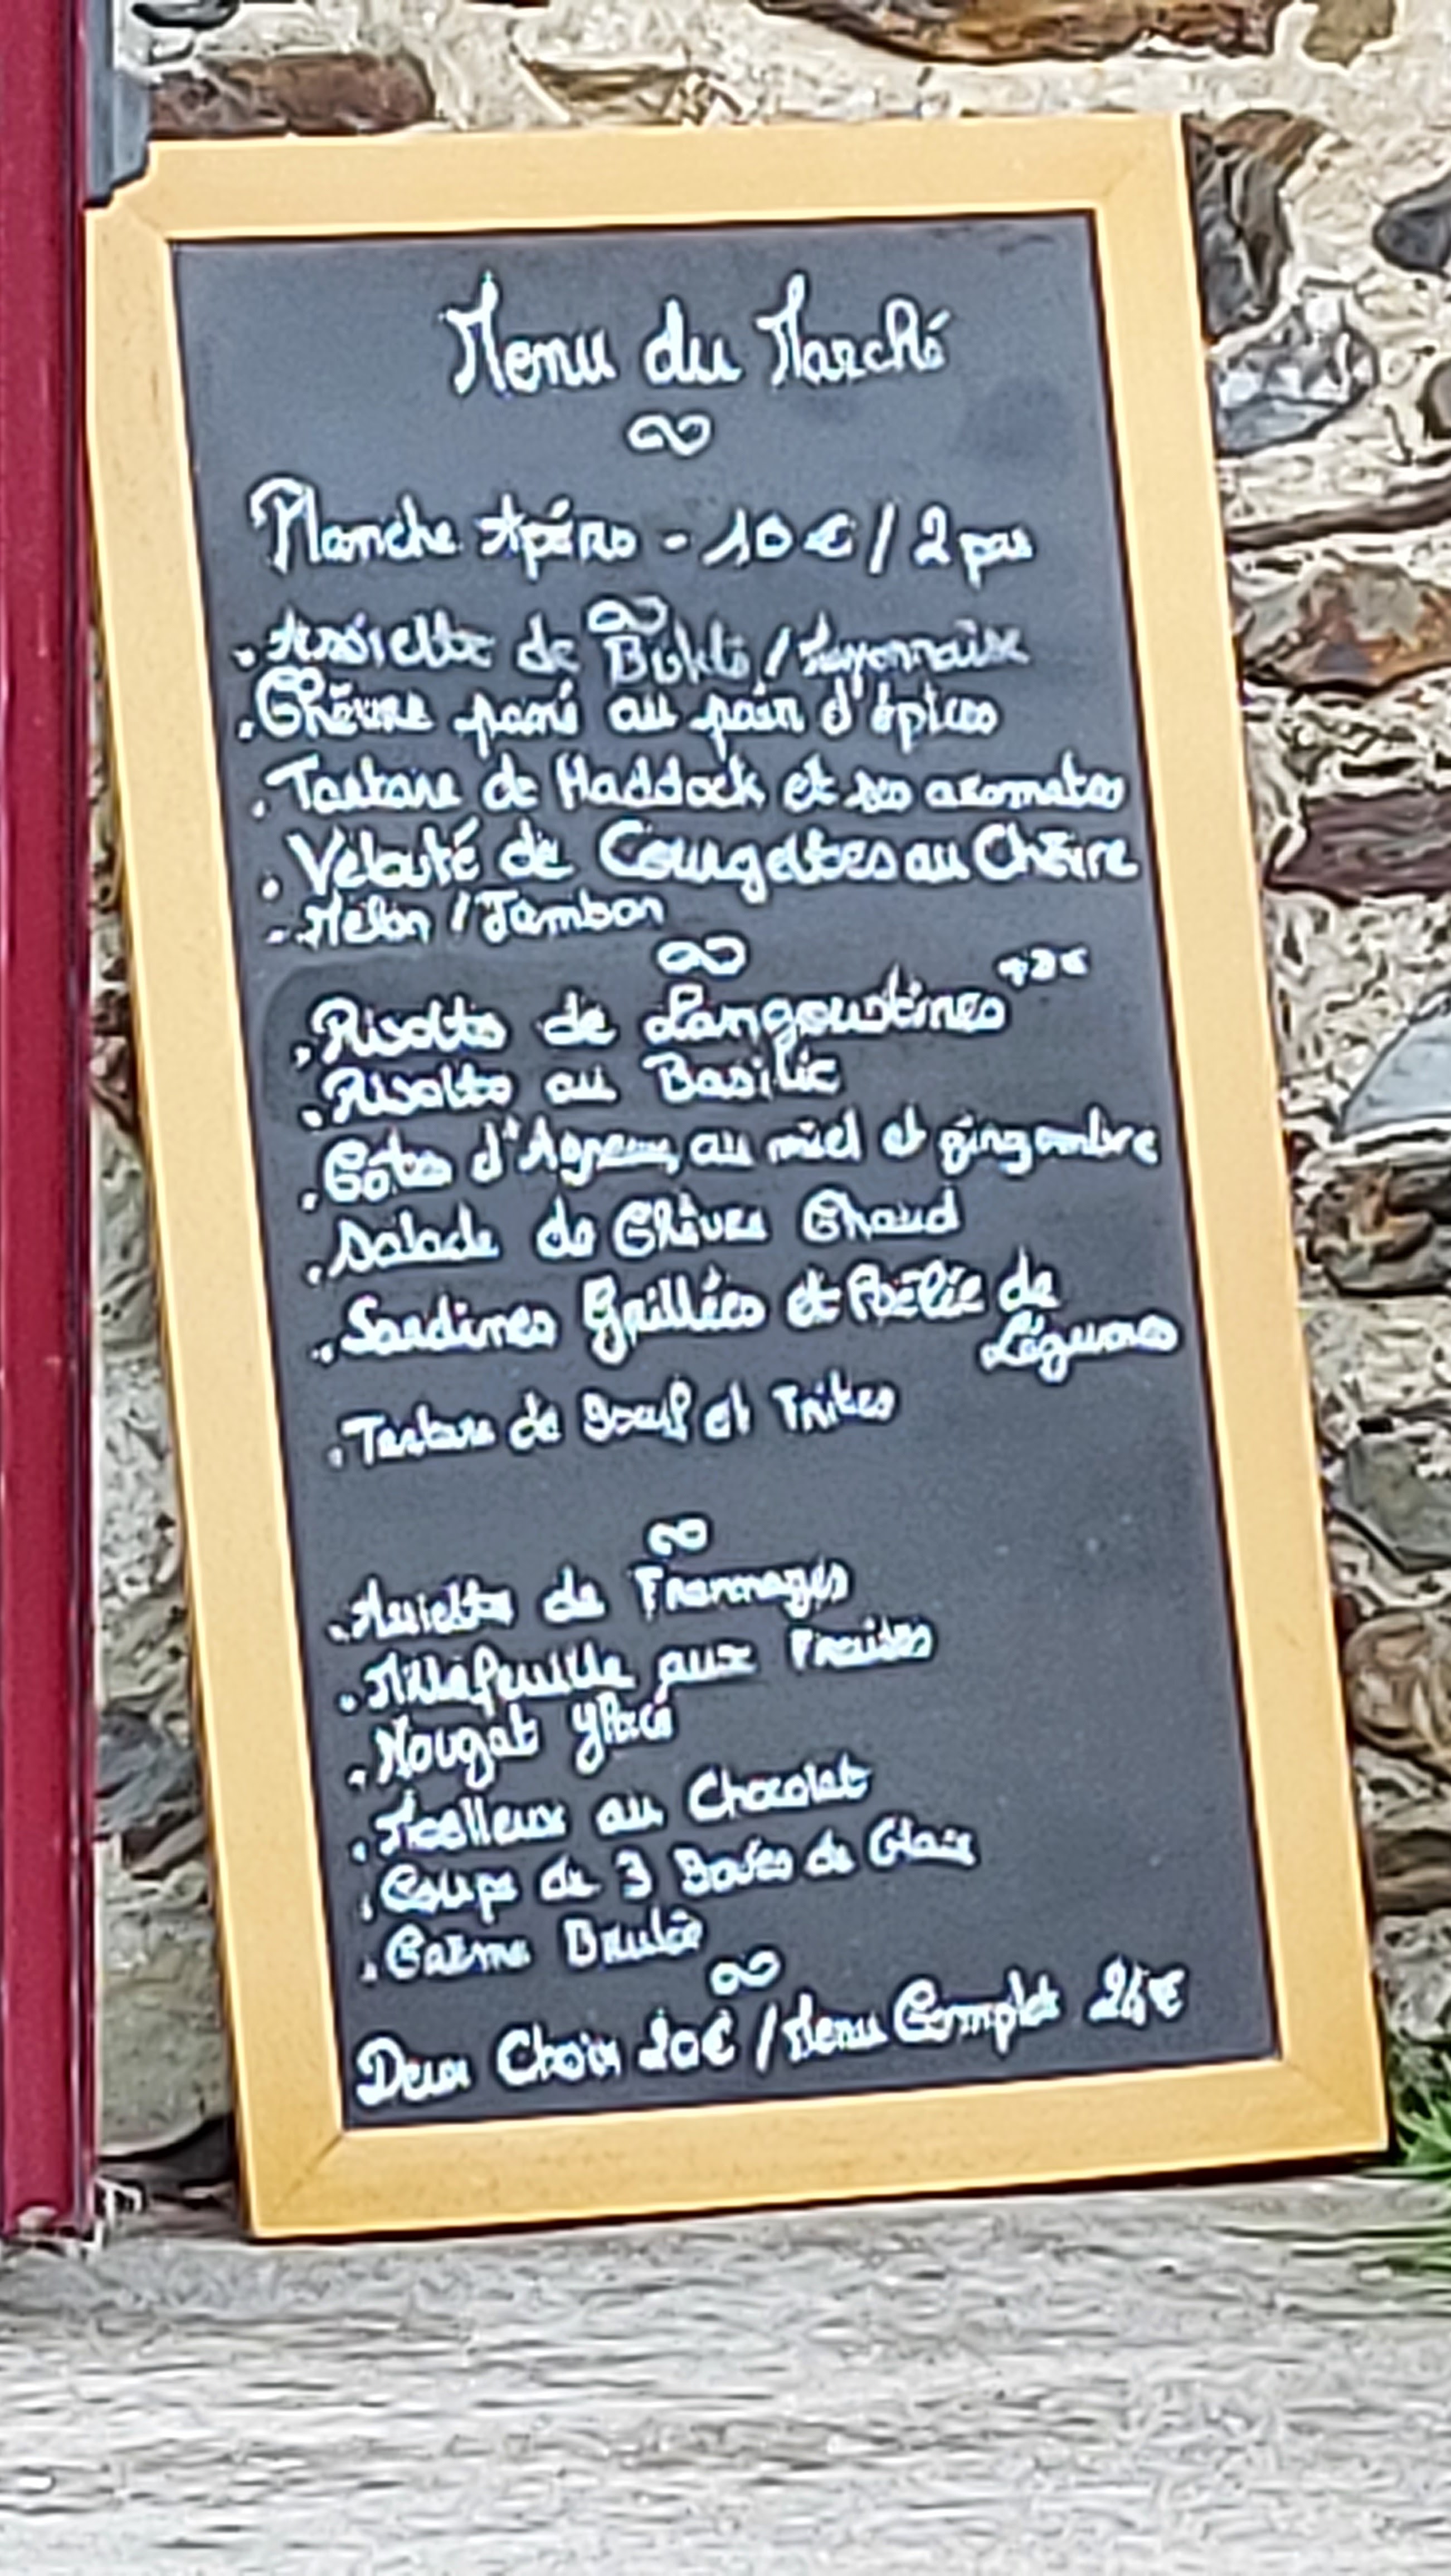 Menu du Marché
Planche Apéro - 10€ / 2 pers
. Assiette de Bulots / Mayonnaise
. Chèvre pané au pain d'épices
. Tartare de Haddock et ses aromates
. Velouté de Courgettes au Chèvre
- Melon / Jambon
. Risotto de Langoustines
. Risotto au Basilic
. Côtes d'Agneau au miel et gingembre
. Salade de Chèvre Chaud
. Sardines Grillées et Poêlée de
Légumes
. Tartare de Boeuf et Frites
. Assiette de Fromages
. Millefeuille aux Fraises
. Nougat Glacé
. Moelleux au Chocolat
. Coupe de 3 Boules de Glace
. Crème Brulée
Deux Choix 20€ / Menu Complet